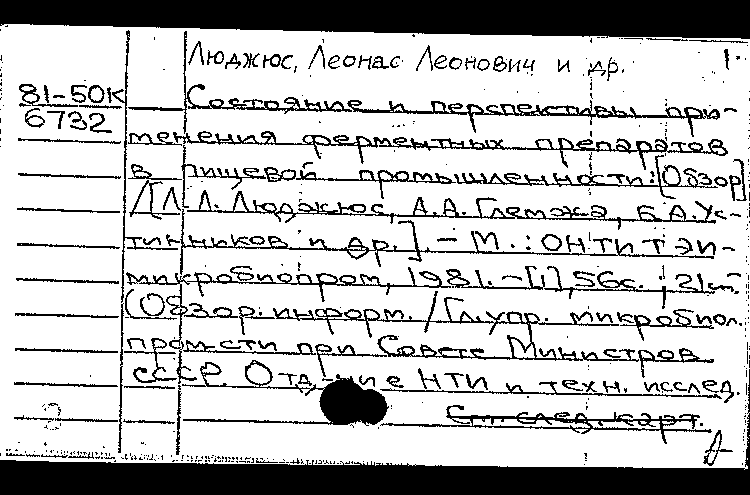 Люджюс, Леонас Леонович и др. 1.
81-50К Состояние и перспективы при-
6732 менения ферментных препаратов
в пищевой промышленности: [Обзор]
/[Л.Л. Люджюс, А.А. Глемжа, Б.А. Ус-
тинников и др.]. - М.: ОНТИТЭИ-
микробиопром, 1981. - [1], 56с.; 21см.
(Обзор. информ. / Гл. упр. микробиол.
пром-сти при Совете Министров
СССР. Отд-ние НТИ и техн. исслед.
См. след. карт.